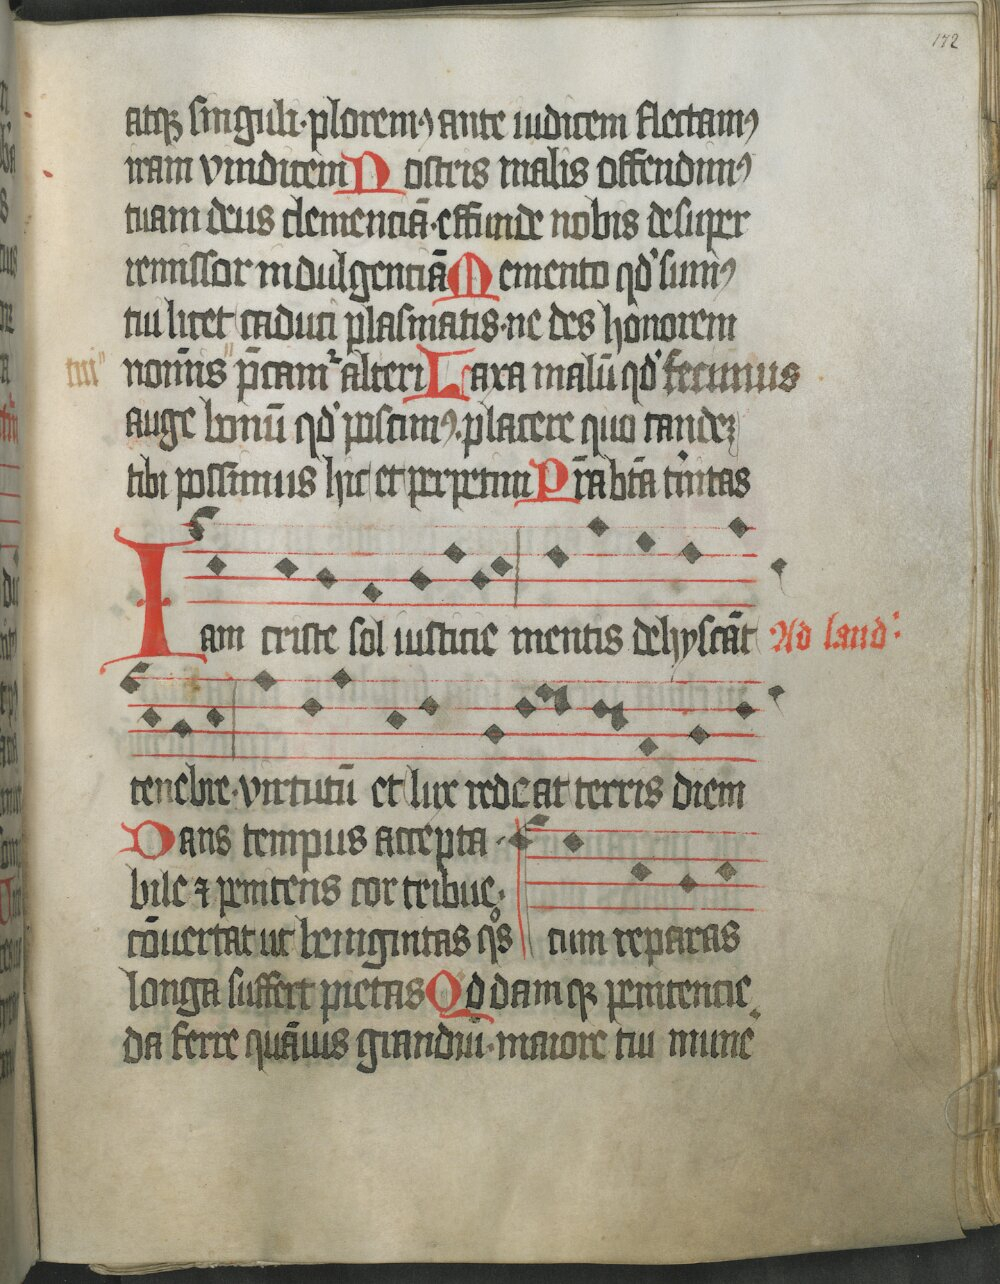 172
atqꝫ singuli · ploremꝰ ante iudicem flectamꝰ
iram vindicem Nostris malis offendimꝰ
tuam deus clemenciā · effunde nobis desuper
remissor indulgenciā Memento qd' sumꝰ
tui licet caduci plasmatis · ne des honorem
tui" nomīs" p̄cam² alteri Laxa malū qd' fecimus
auge bonū qd' poscimꝰ · placere quo tandeꝫ
tibi possimus hic et perpetim P̄ra bt̄a tiⁱtas
Iam criste sol iusticie mentis dehyscāt Ad laud'
tenebre · virtutū et lux redeat terris diem
Dans tempus accepta
bile ⁊ penitens cor tribue ·
cōuertat ut benignitas qº̄s tuum reparas
longa suffert pietas Qd dam qꝫ penitencie
da ferre quāuis grandiū · maiore tui mune